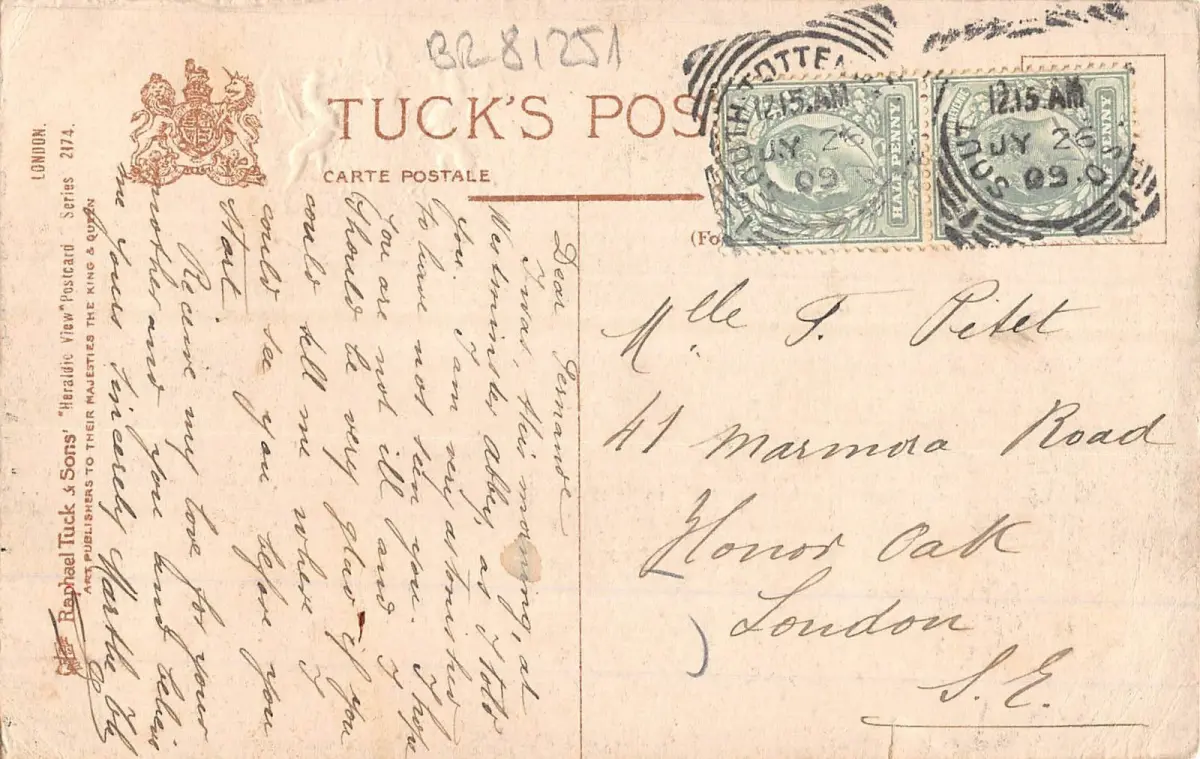 BR81251
TUCK'S POS
CARTE POSTALE
(Fo
SOUTH TOTTE
12.15.AM
JY 26
09
HALFPENNY
SOUT
12.15.AM
JY 26
09
PENNY
LONDON.
Raphael Tuck & Sons' "Heraldic View" Postcard Series 2174.
ART PUBLISHERS TO THEIR MAJESTIES THE KING & QUEEN
Dear Fernande
I was, this morning, at
Westminster Abbey, as I told
you. I am very astonished
to have not seen you. I hope
you are not ill and I
should be very glad if you
could tell me where I
could see you before you
start.
Receive my love for your
mother and you and believe
me yours sincerely Marthe
Mlle F. Pitet
41 Marmora Road
Honor Oak
London
S.E.